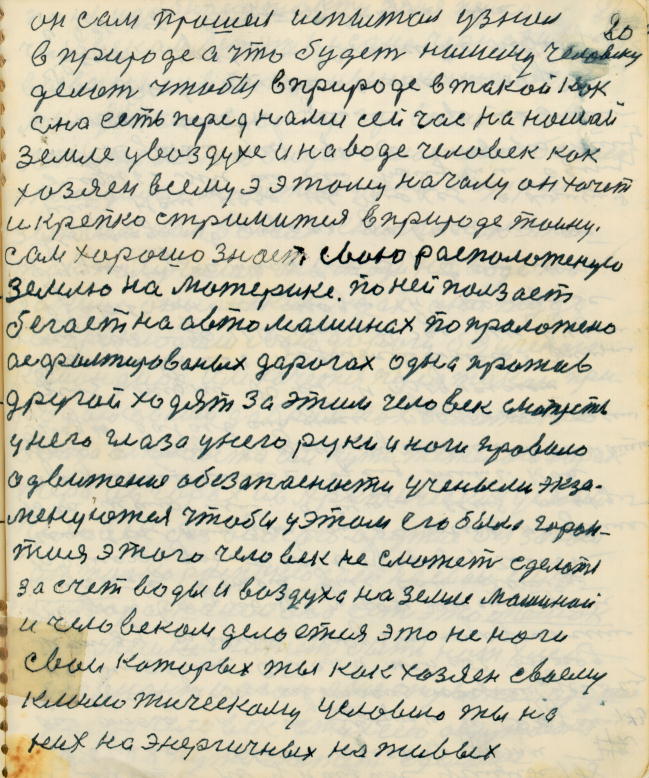 20
он сам прошел испытал узнал
в природе а что будет нашему человеку
делат чтобы в природе в такой как
она есть перед нами сей час на нашай
земле у воздухе и на воде человек как
хозяен всему э этому началу он хочет
и крепко стримится в природе
сам хорошо знает свою расположеную
землю на материке. по ней ползает
бегает на автомашинах по проложено
асфалтированых дарогах одна против
другой ходят за этим человек смотреть
у него глаза у него руки и ноги правило
одвижение обезапасности ученыели экза-
менуются чтобы у этом его было горан-
тия этого человек не сможет сделать
за счет воды и воздуха на земле машиной
и человеком делается это не ноги
свои которых ты как хозяен своему
климотическому условию ты на
них на энергичных на живых